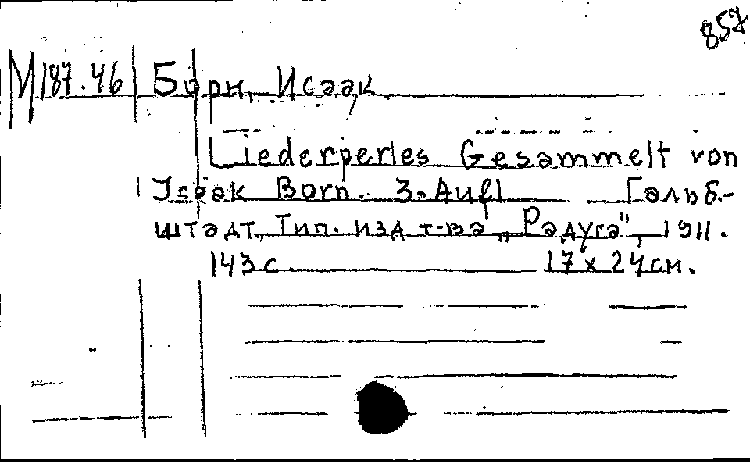 857
М 187.46 Борн, Исаак
Liederperles Gesammelt von
Isaak Born. 3. Aufl Гальб-
штадт, Тип. изд т-ва „Радуга", 1911.
143 с 17 x 24 см.